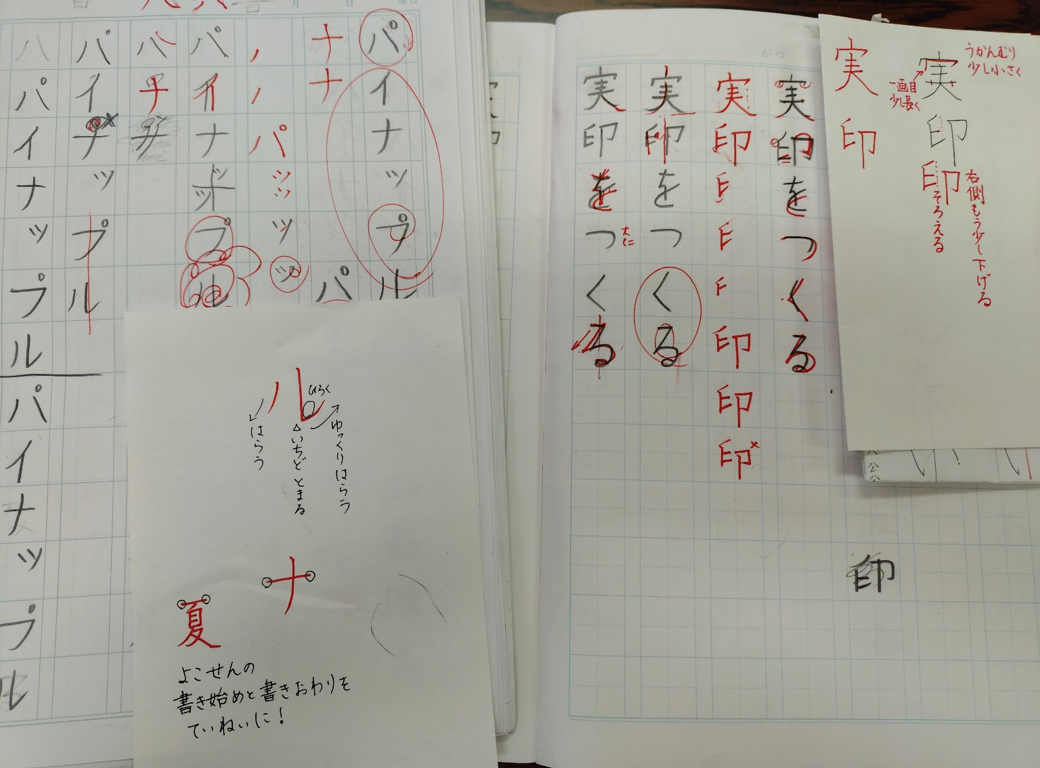 パイナップル
パイナップル
パイナップル
パイナップル
ル
ひろく
ゆっくりはらう
いちどとまる
はらう
ナ
夏
よこせんの
書き始めと書きおわりを
ていねいに！
実印をつくる
実印
印印印
実印をつくる
実印をつくる
実印
うかんむり
少し小さく
一画目
少し長く
実印
印
右側もう少し下げる
そろえる
印